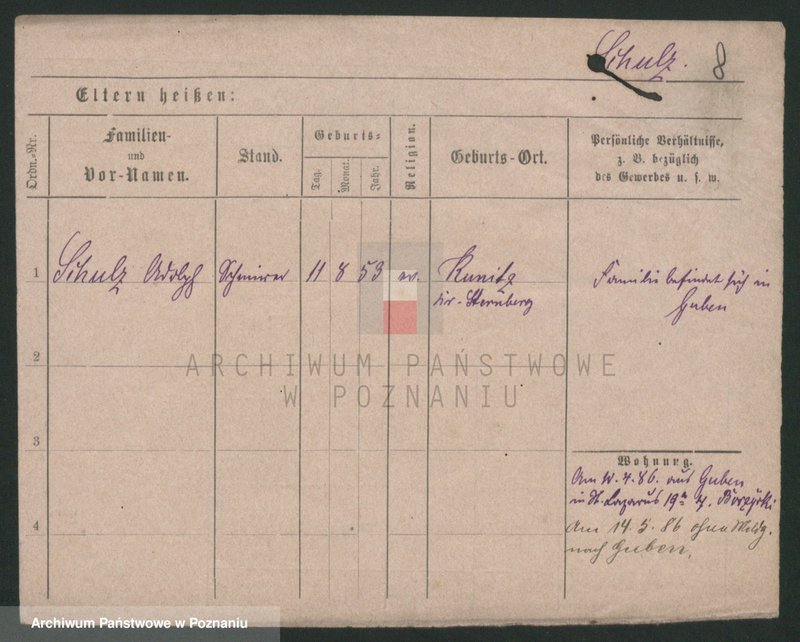 Schulz. 8
Eltern heißen:
Ordn.-Nr.
Familien-
und
Vor-Namen.
Stand.
Geburts-
Tag.
Monat.
Jahr.
Religion.
Geburts-Ort.
Persönliche Verhältnisse,
z. B. bezüglich
des Gewerbes u. s. w.
1 Schulz Adolph 11 8 53 ev. Kunitz
Kr. Sternberg
Familie befindet sich in
Guben
2
ARCHIWUM PAŃSTWOWE
W POZNANIU
3
Wohnung.
Am 4. 86. aus Guben
in St. Lazarus 19a
4
Am 14. 5. 86 ohne Meldg.
nach Guben.
Archiwum Państwowe w Poznaniu